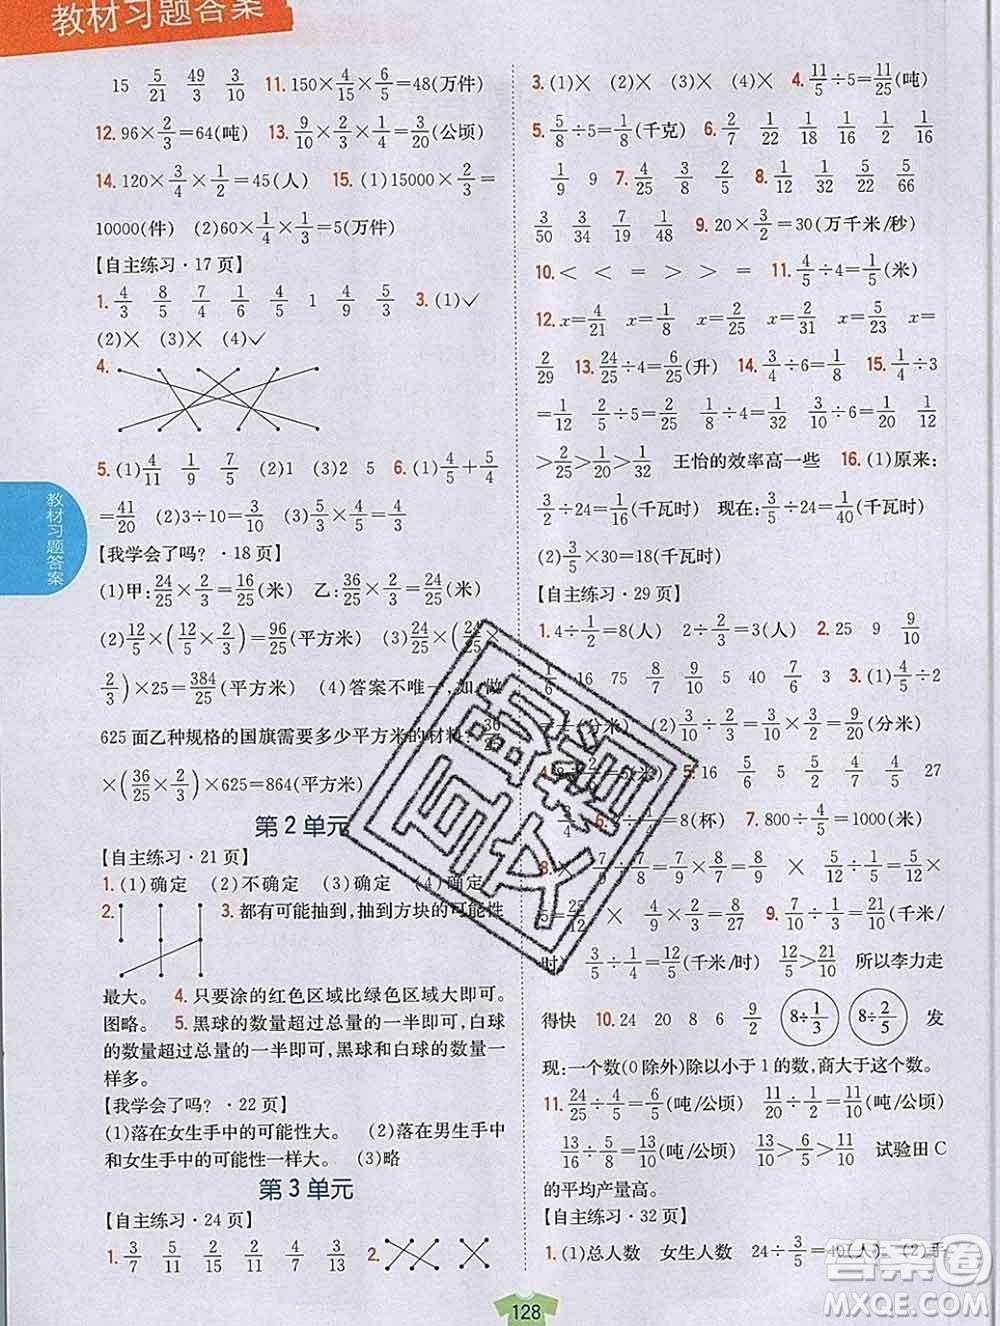 教材习题答案
15 5/21 49/3 3/10 11. 150×4/15×6/5=48(万件)
12. 96×2/3=64(吨) 13. 9/10×2/3×1/4=3/20(公顷)
14. 120×3/4×1/2=45(人) 15. (1)15000×2/3=
10000(件) (2)60×1/4×1/3=5(万件)
【自主练习·17页】
1. 4/3 8/5 7/6 1/6 4/5 1 4/9 5/3 3. (1)✓
(2)× (3)× (4)✓
4.
5. (1)4/11 1/9 7/5 (2)1 (3)2 5 6. (1)4/5+5/4
=41/20 (2)3÷10=3/10 (3)5/4×4/5
【我学会了吗?·18页】
(1)甲:24/25×2/3(米) 乙:36/25×2/3(米)
(2)12/5×(12/5×2/3)=96/25(平方米) (3)24/25×(24/25×
2/3)×25=384/25(平方米) (4)答案不唯一,如:做
625面乙种规格的国旗需要多少平方米的材料? 36/25
×(36/25×2/3)×625=864(平方米)
第2单元
【自主练习·21页】
1. (1)确定 (2)不确定 (3)确定 (4)确定
2. 3. 都有可能抽到,抽到方块的可能性
最大。 4. 只要涂的红色区域比绿色区域大即可。
图略。 5. 黑球的数量超过总量的一半即可,白球
的数量超过总量的一半即可,黑球和白球的数量一
样多。
【我学会了吗?·22页】
(1)落在女生手中的可能性大。 (2)落在男生手中
和女生手中的可能性一样大。 (3)略
第3单元
【自主练习·24页】
1. 3/7 5/11 2/15 7/11 2.
3. (1)× (2)× (3)× (4)× 4. 11/5÷5=11/25(吨)
5. 5/8÷5=1/8(千克) 6. 2/7 1/22 1/18 1/16 1/2 1/16
1/9 9 7. 4/25 3/8 2/5 8. 1/12 1/32 5/22 5/66
3/50 3/34 7/19 1/64 9. 20×3/2=30(万千米/秒)
10. < < = > > > 11. 4/5÷4=1/5(米)
12. x=4/21 x=1/8 x=2/25 x=3/20 x=5/23
2/29 13. 24/25÷4=6/25(升) 14. 3/4÷6=1/8 15. 1/4÷3
=1/12 1/5÷8=1/40 1/8÷4=1/32 3/10÷6=1/20 1/12
>1/20>1/32 王怡的效率高一些 16. (1)原来:
3/2÷24=1/16(千瓦时) 现在:3/5÷24=1/40(千瓦时)
(2)3/5×30=18(千瓦时)
【自主练习·29页】
1. 4÷1/2=8(人) 2÷2/3=3(人) 2. 25 9 9/10
1/6 16 75 7/8 4/25 2/7 3. (1)4/5÷2
(分米) (2)3/5÷2/3=3/5×3/2=9/10(分米)
5. 16 5/6 5/2 4/5 27
=8(杯) 7. 800÷4/5=1000(米)
×
9. 7/10÷1/3=21/10(千米/
时) 3/5÷1/4=12/5(千米/时) 12/5>21/10 所以李力走
得快 10. 24 20 8 6 9/2 8÷1/3 8÷2/5 发
现:一个数(0除外)除以小于1的数,商大于这个数。
11. 24/25÷4/5=6/5(吨/公顷) 11/20÷1/2=11/10(吨/公顷)
13/16÷5/8=13/10(吨/公顷) 13/10>6/5>11/10 试验田C
的平均产量高。
【自主练习·32页】
1. (1)总人数 女生人数 24÷3/5=40(人) (2)手
教材习题答案
128
答案圈
MXQE.COM